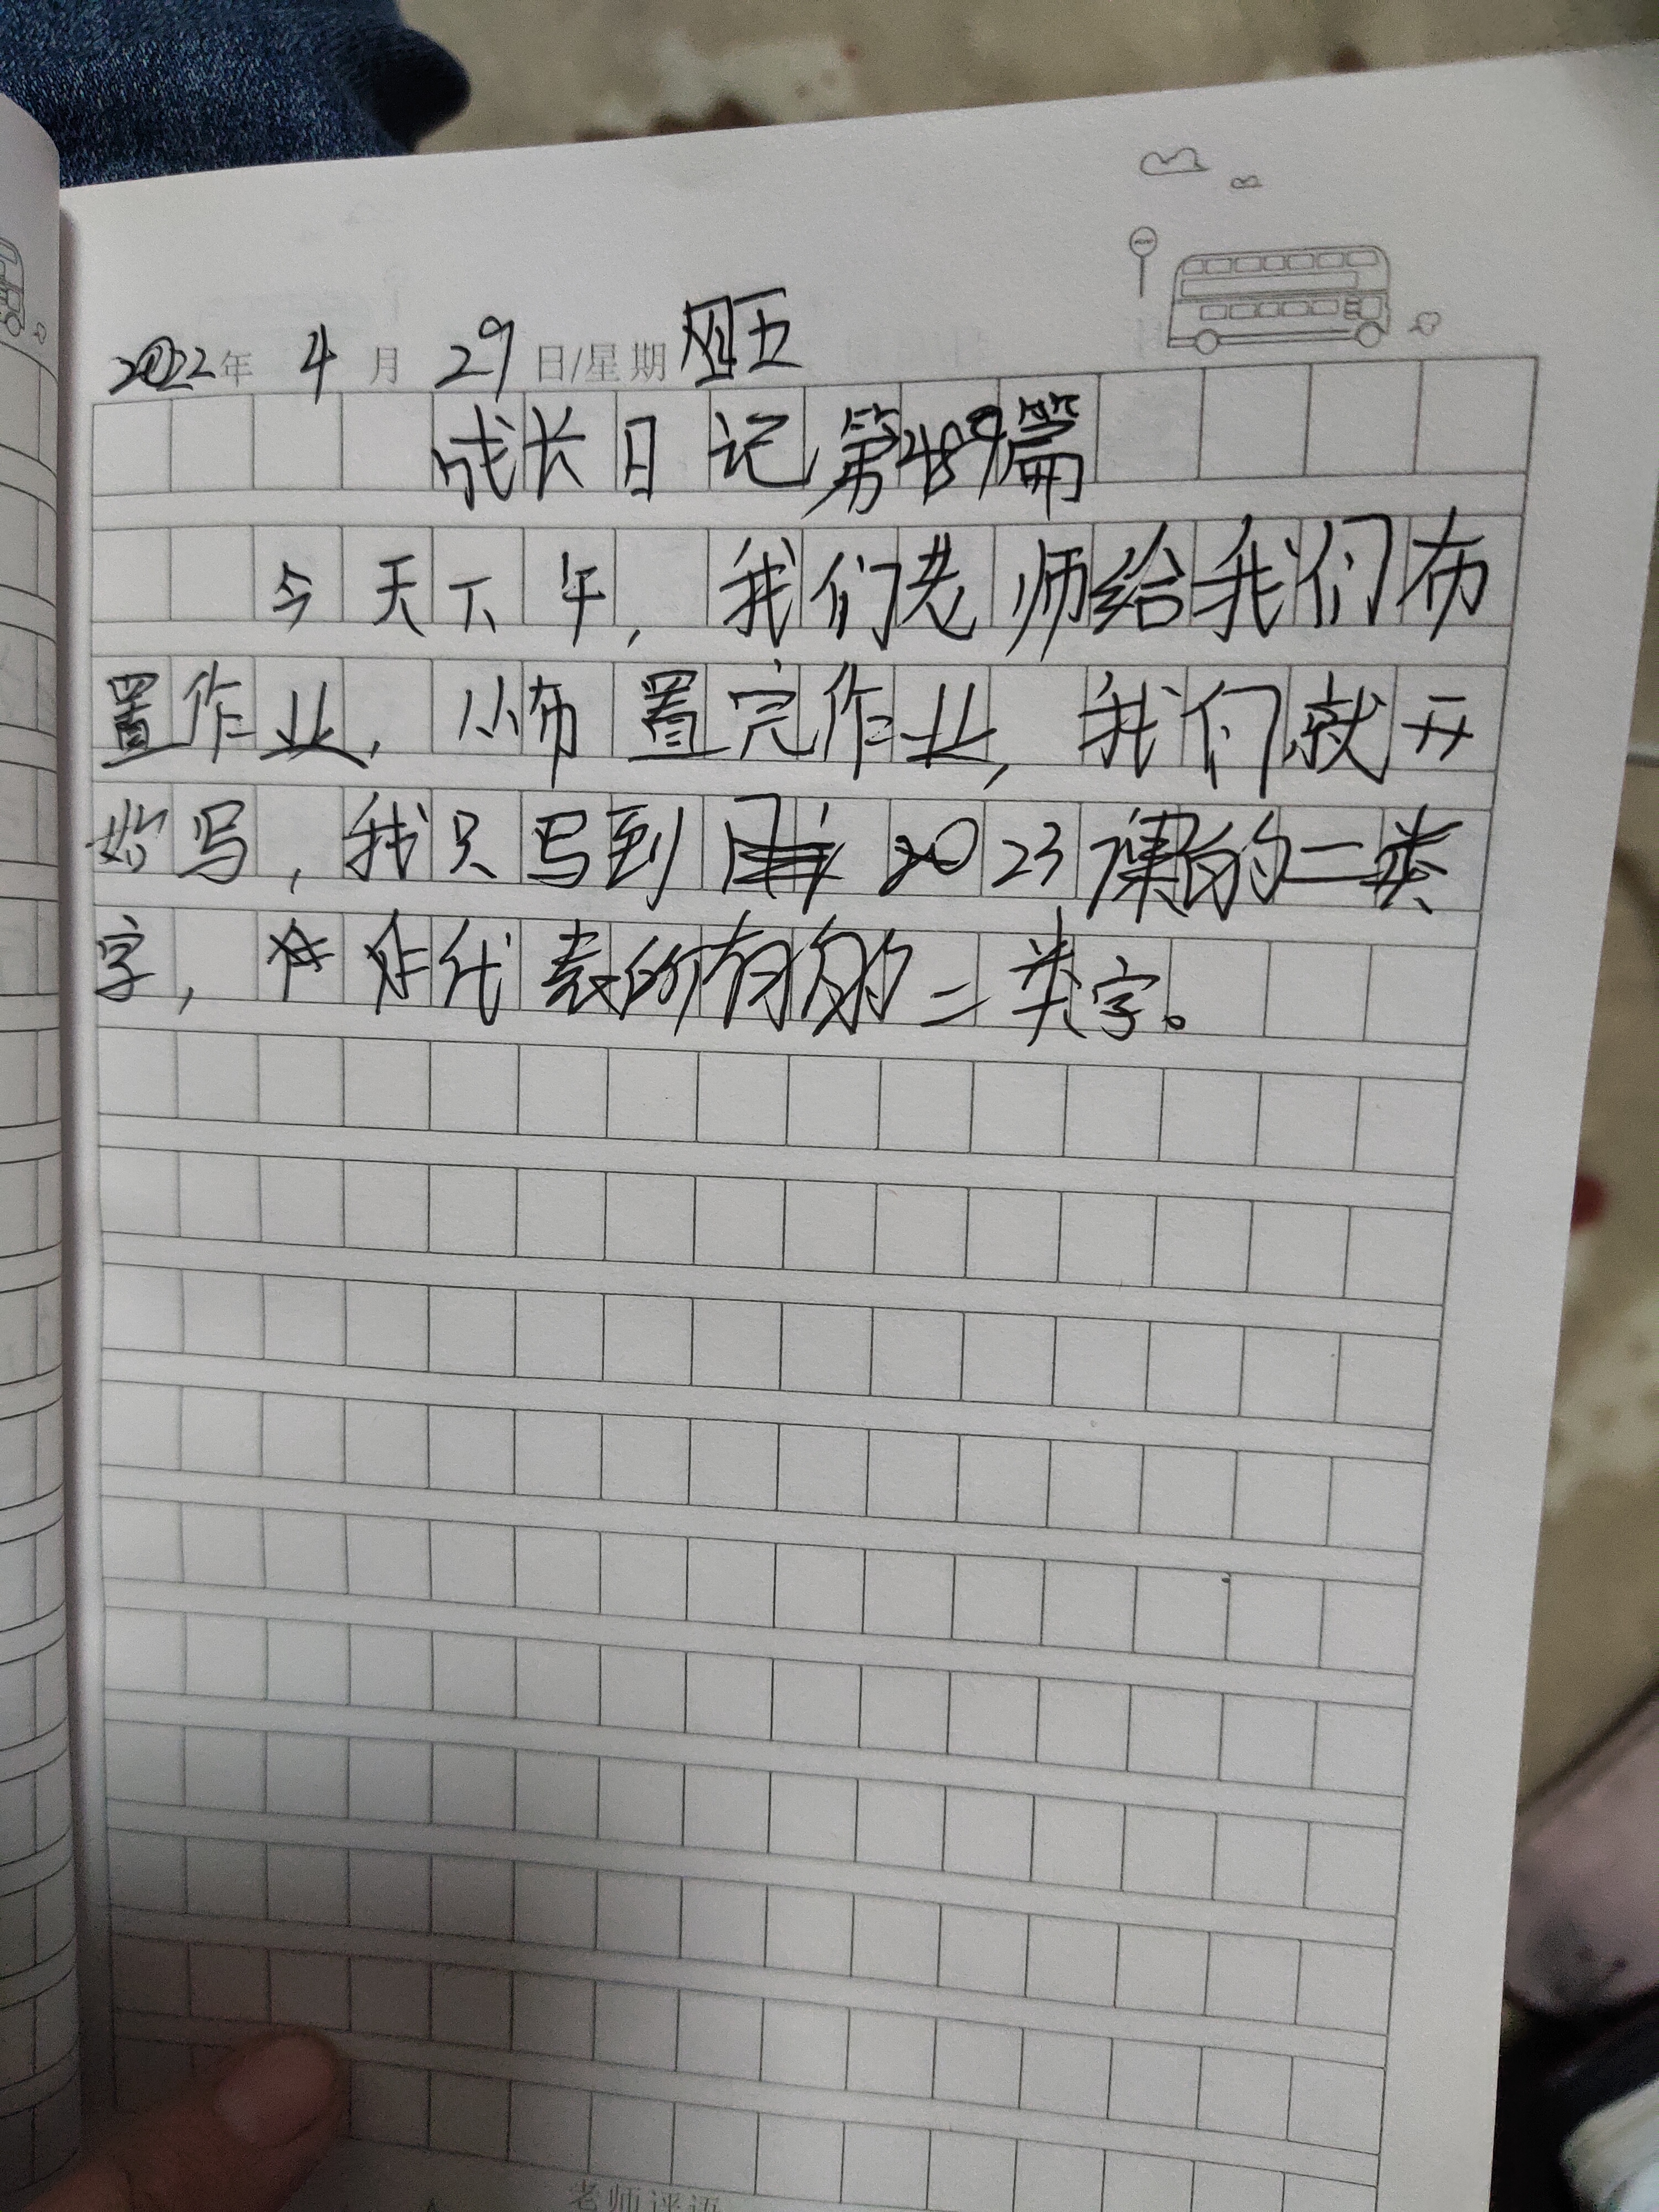 2022年 4 月 29 日/星期 五
成长日记第489篇
今天下午，我们老师给我们布
置作业，布置完作业，我们就开
始写，我只写到 23课的二类
字，代表的有的二类字。
老师评语